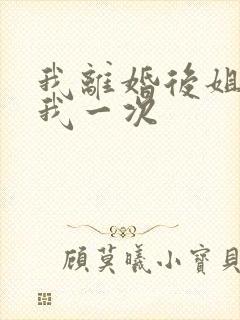 我離婚後姐
我一次
顾莫曦小寶貝